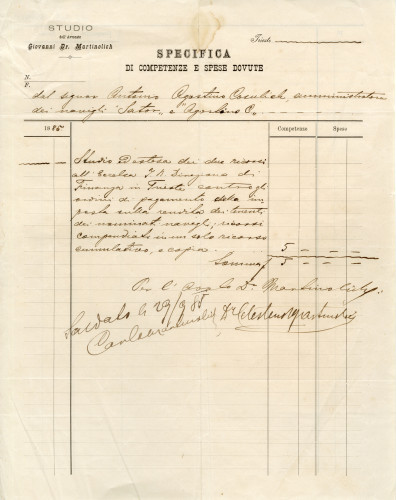 STUDIO
dell'avvocato
Giovanni Dr. Martinolich
Trieste
SPECIFICA
DI COMPETENZE E SPESE DOVUTE
N.
F.
del signor Antonio Agostino Cosulich, amministratore
dei navigli "Sator" e "Agostino C."
188 Competenze Spese
Studio e Distesa dei due ricorsi
all'Eccelsa I. R. Direzione di
Finanza in Trieste contro gli
ordini di pagamento della im
posta sulla rendita
dei nominati navigli; ricorsi
compendiati in un solo ricorso
cumulativo, e copia 5 — —
Somma f 5 — —
Per l' Avv.to Dr. Martinolich
Saldato li 29/9 85
Dr Celestino Martinolich